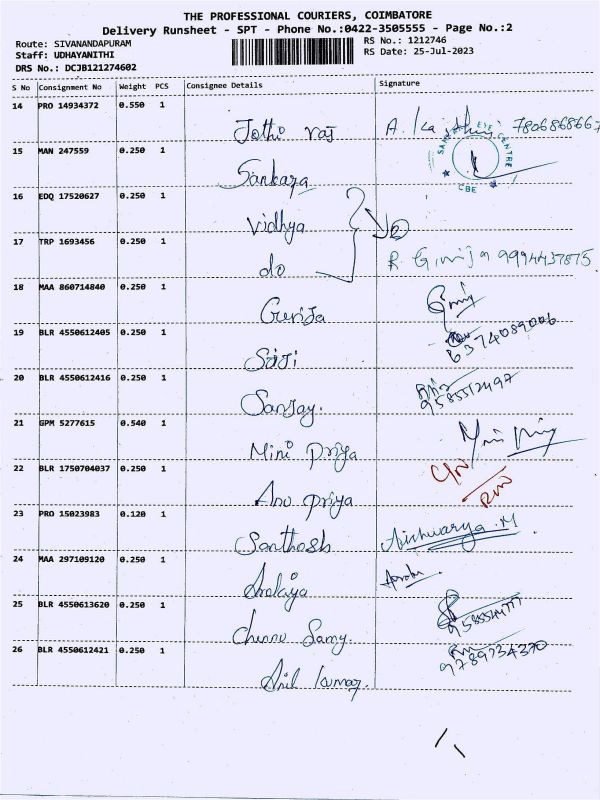 THE PROFESSIONAL COURIERS, COIMBATORE
Delivery Runsheet - SPT - Phone No.:0422-3505555 - Page No.:2
Route: SIVANANDAPURAM
RS No.: 1212746
Staff: UDHAYANITHI
RS Date: 25-Jul-2023
DRS No.: DCJB121274602
S No Consignment No Weight PCS Consignee Details Signature
14 PRO 14934372 0.550 1
Jothi raj A. 7806868667
15 MAN 247559 0.250 1
Sankara
EYE CENTRE
CBE
16 EDQ 17520627 0.250 1
Vidhya
17 TRP 1693456 0.250 1
do R. Girija 9994437875
18 MAA 860714840 0.250 1
Gurija
19 BLR 4550612405 0.250 1
6374089006
Saji
20 BLR 4550612416 0.250 1
9585512497
Sanjay.
21 GPM 5277615 0.540 1
Mini Priya
22 BLR 1750704037 0.250 1
Anu priya
23 PRO 15023983 0.120 1
Santhosh Aishwarya.M
24 MAA 297109120 0.250 1
25 BLR 4550613620 0.250 1
Chennu Samy.
26 BLR 4550612421 0.250 1
9789734370
Anil kumar.